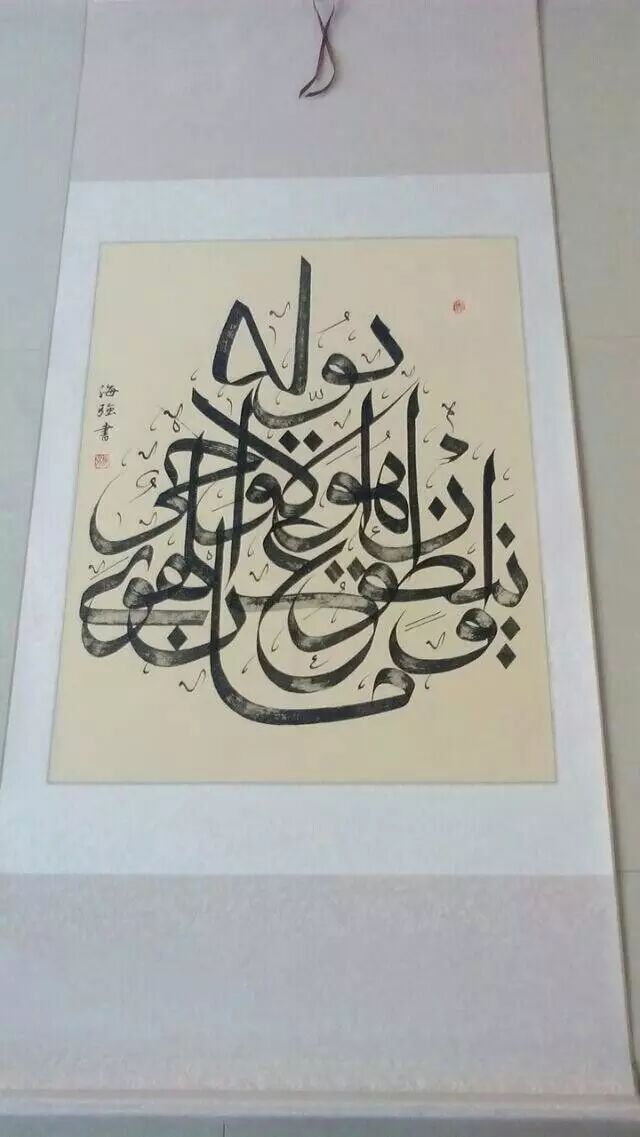 وما ينطق عن الهوى
إن هو إلا وحي
يوحى
海強書